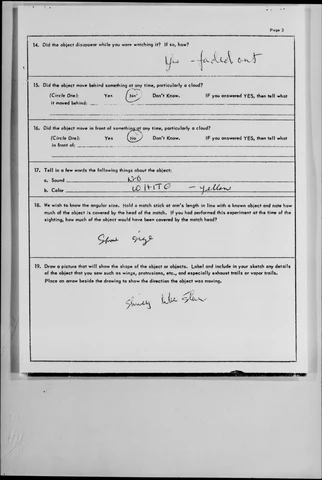 Page 2
14. Did the object disappear while you were watching it? If so, how?
Yes - faded out
15. Did the object move behind something at any time, particularly a cloud?
(Circle One): Yes No Don't Know. IF you answered YES, then tell what
it moved behind:
16. Did the object move in front of something at any time, particularly a cloud?
(Circle One): Yes No Don't Know. IF you answered YES, then tell what
in front of:
17. Tell in a few words the following things about the object:
a. Sound NO
b. Color WHITE - yellow
18. We wish to know the angular size. Hold a match stick at arm's length in line with a known object and note how
much of the object is covered by the head of the match. If you had performed this experiment at the time of the
sighting, how much of the object would have been covered by the match head?
size
19. Draw a picture that will show the shape of the object or objects. Label and include in your sketch any details
of the object that you saw such as wings, protrusions, etc., and especially exhaust trails or vapor trails.
Place an arrow beside the drawing to show the direction the object was moving.
like Star